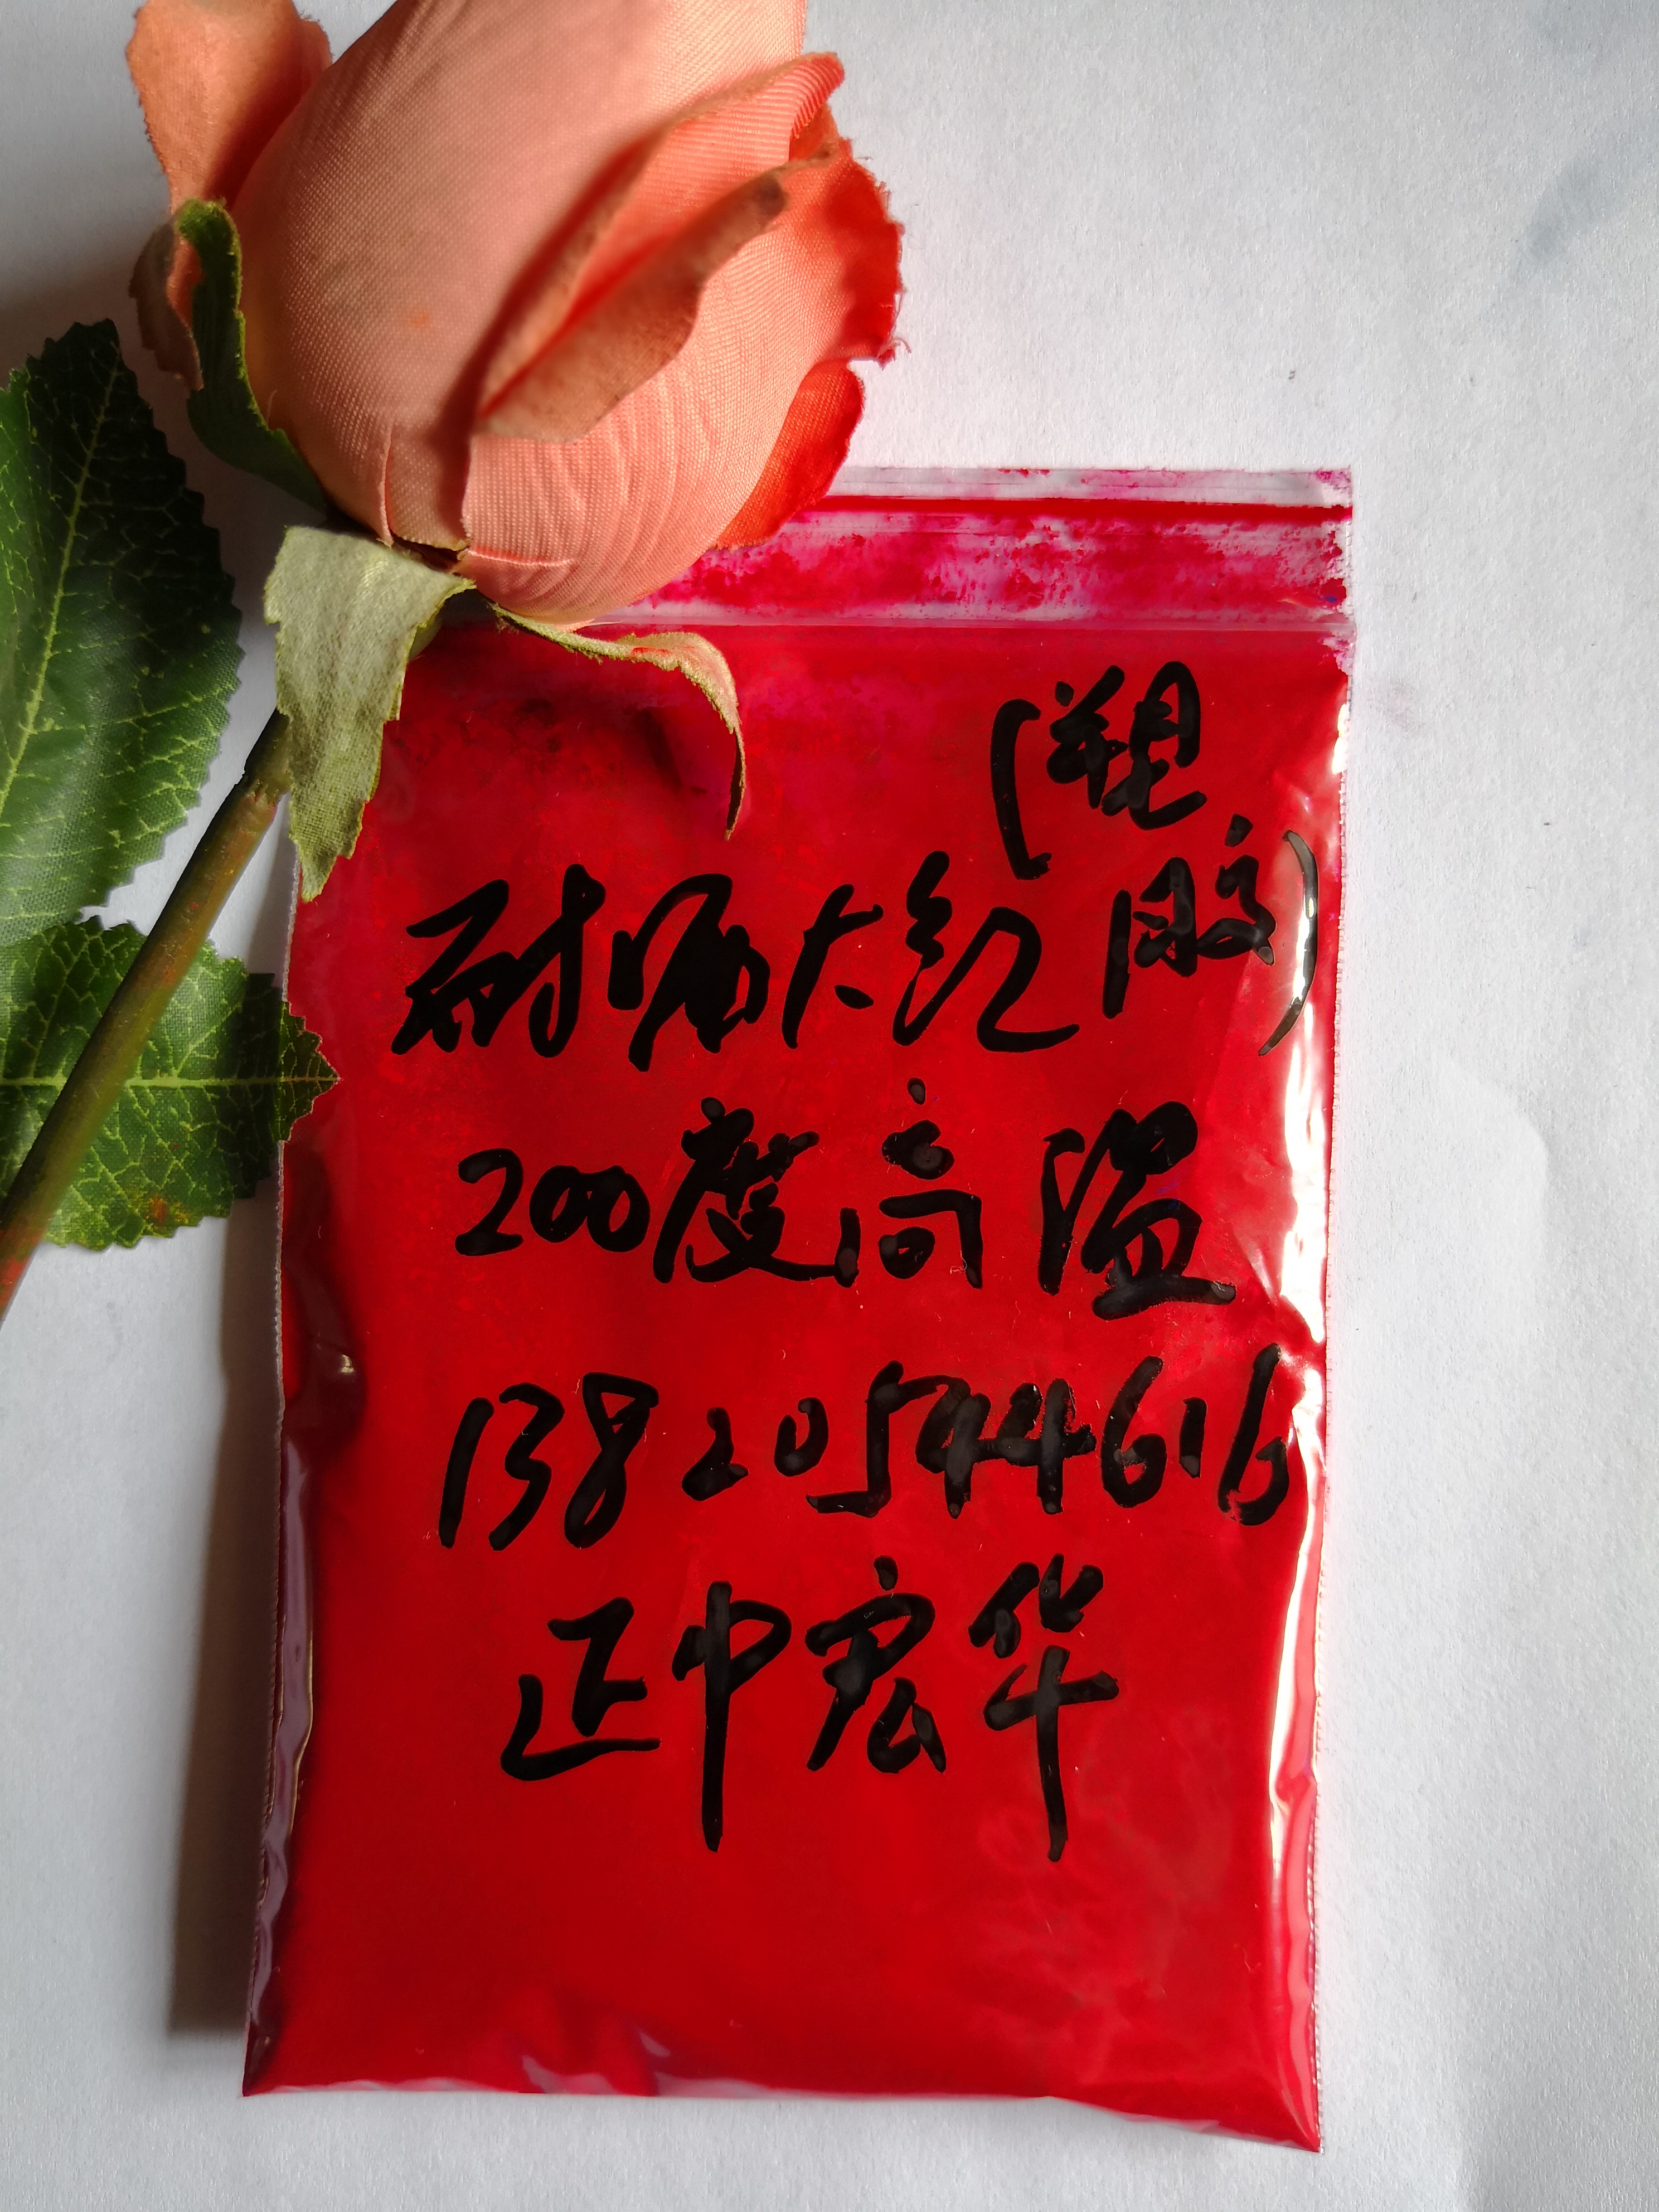 (塑
胶)
耐晒大红
200度高温
13820544616
正中宏华